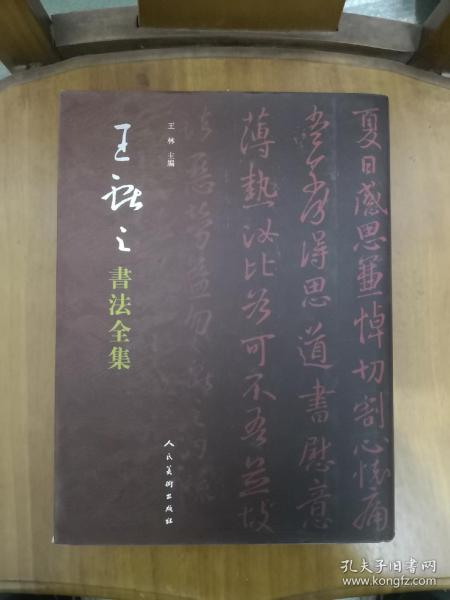 夏日感思兼悼切割心懐痛
當奈何得思道書慰意
薄熱汝比各可不吾並故
王林 主编
王献之書法全集
人民美術出版社
孔夫子旧书网
www.kongfz.com